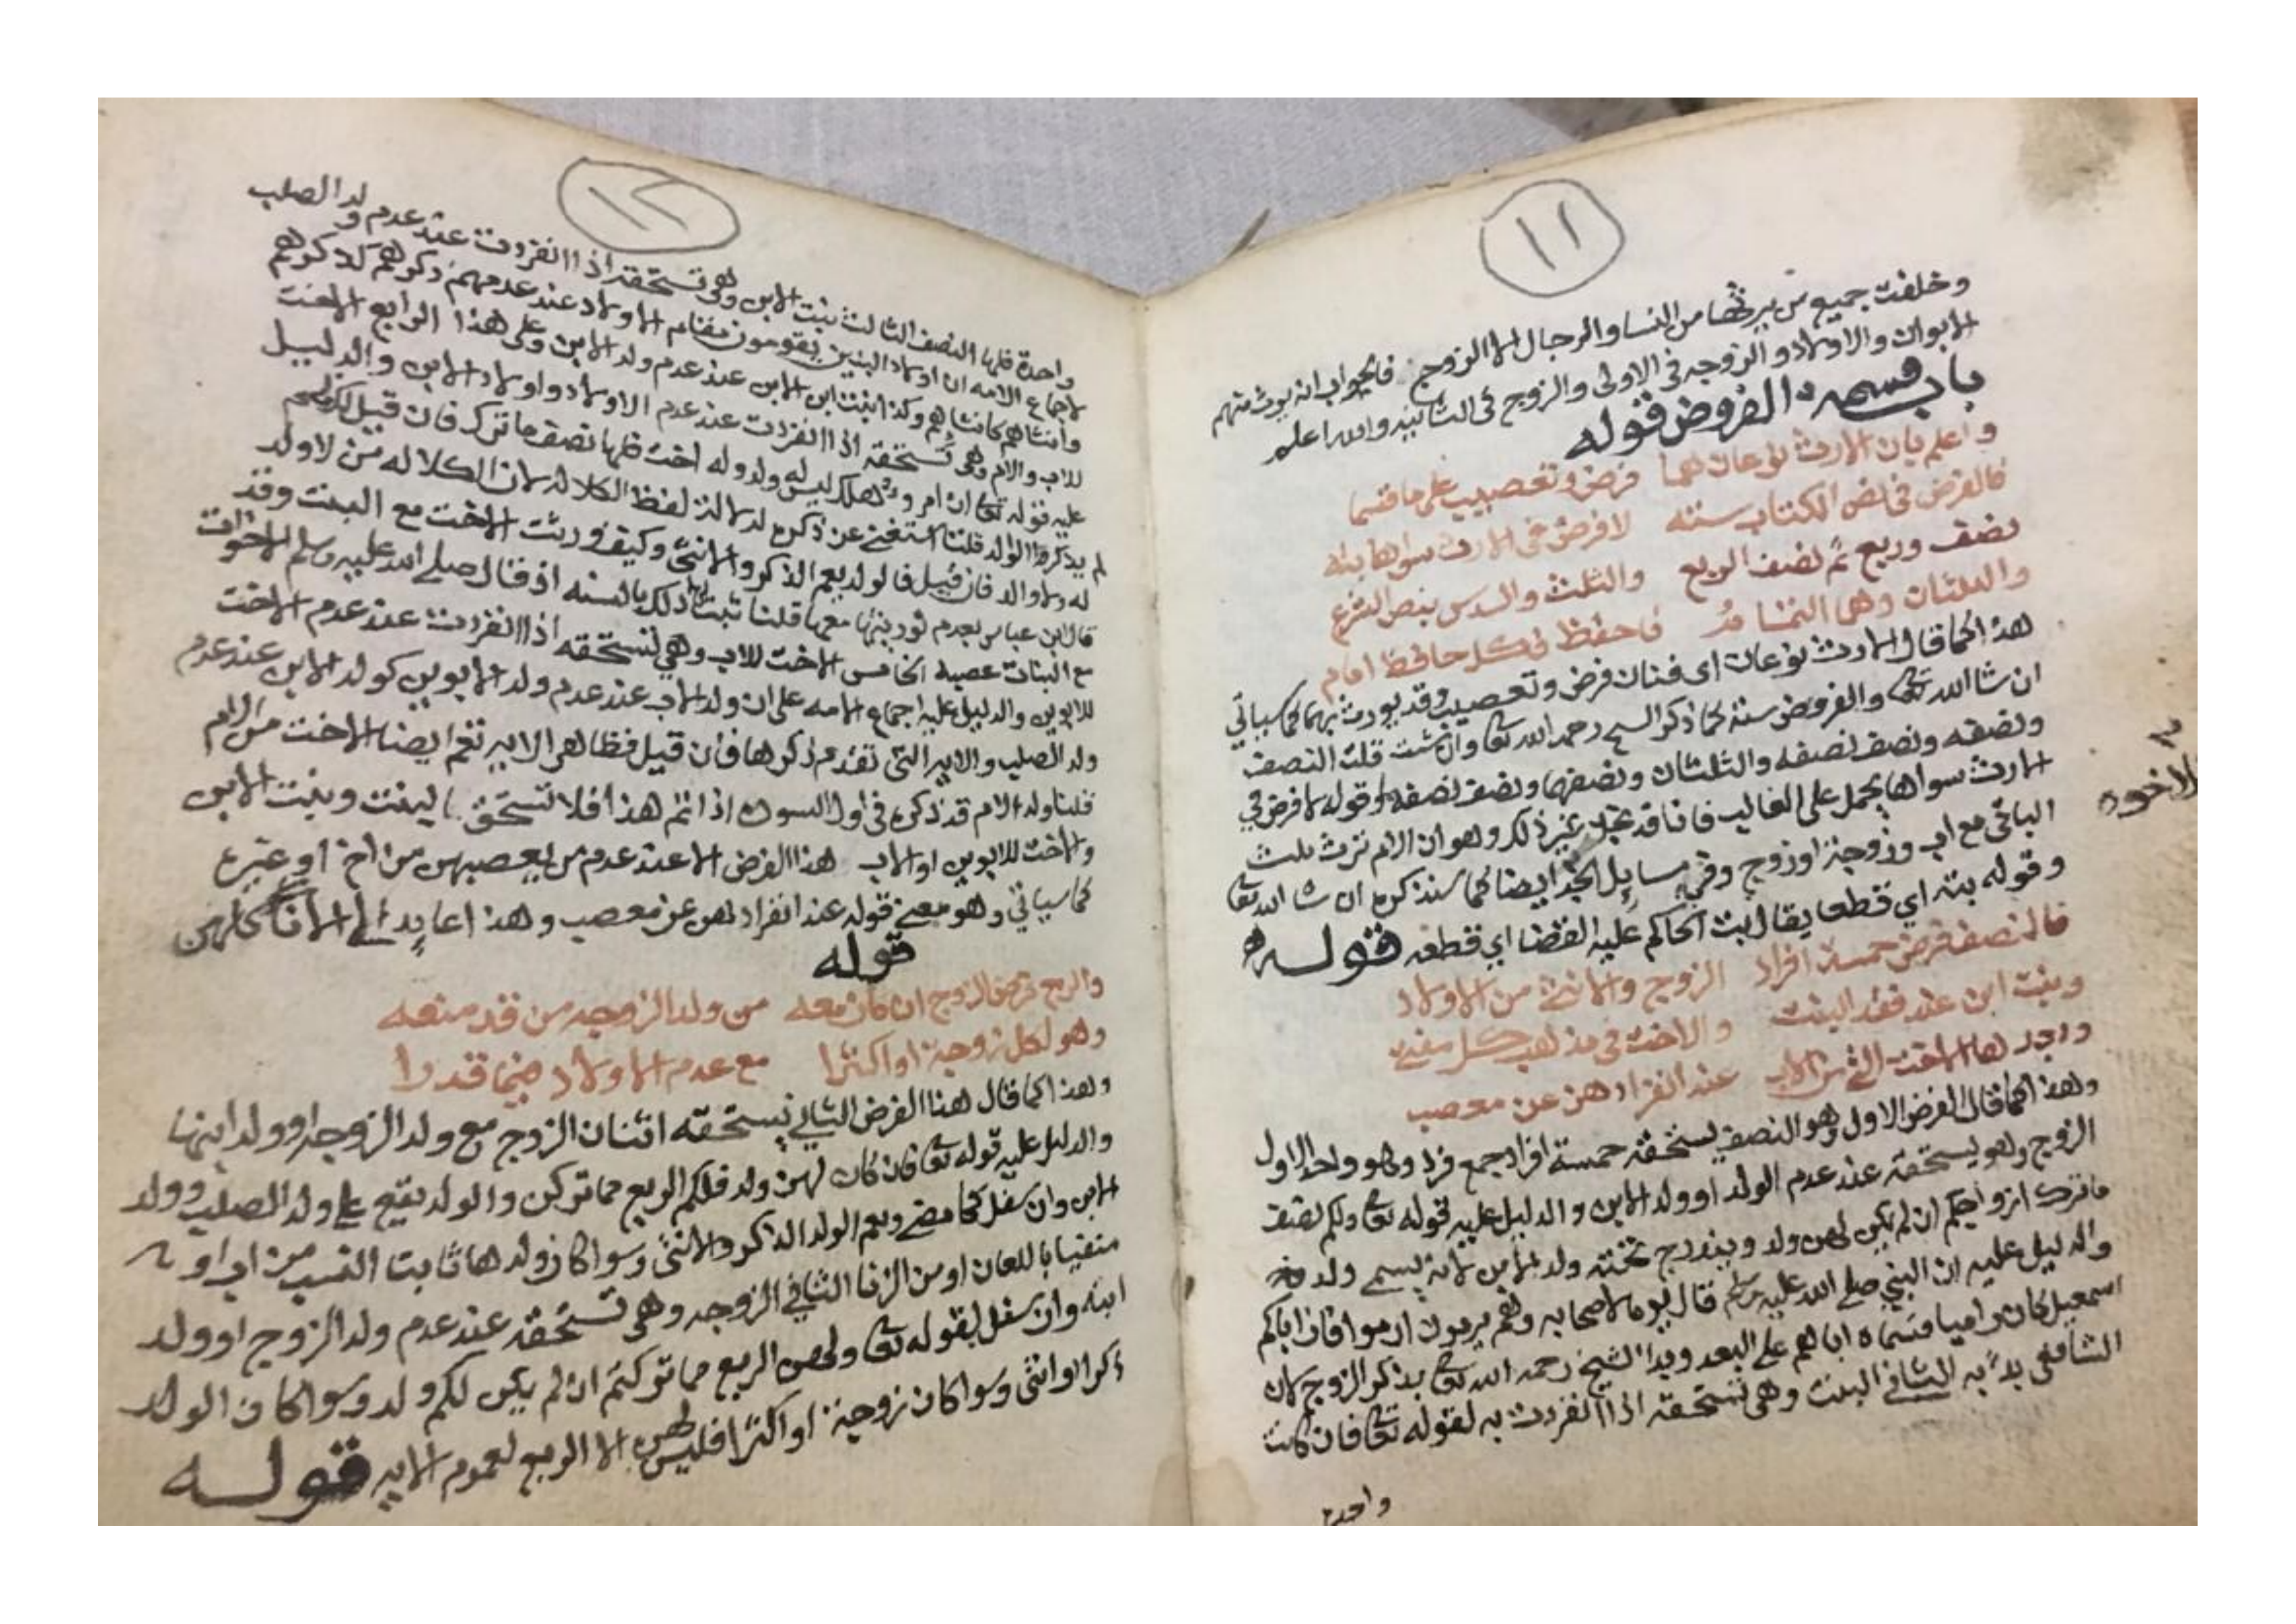 ١١
وخلفت جميع من يرثها من النسا والرجال الا الزوج فالجواب انه يورث منهم
الابوان والاولاد والزوجه في الاولى والزوج في الثانيه والله اعلم
باب قسمة الفروض قوله
واعلم بان الارث نوعان هما فرض وتعصيب على ما قسما
فالفرض في نص الكتاب سته لا فرض في الارث سواها بته
نصف وربع ثم نصف الربع والثلث والسدس بنص الشرع
والثلثان وهي التمام فاحفظ فكل حافظ امام
هذا كما قال الارث نوعان اي فنان فرض وتعصيب وقد يورث بهما كما سياتي
ان شا الله تعالى والفروض ستة كما ذكر الشيخ رحمه الله تعا وان شئت قلت النصف
ونصفه ونصف نصفه والثلثان ونصفهما ونصف نصفه وقوله لا فرض في
الارث سواها يحمل على الغالب فانا قد غير ذلك وهو ان الام ترث ثلث
الباقي مع اب وزوجة او زوج وفي مسايل الجد ايضا كما سنذكره ان شا الله تعا
وقوله بته اي قطعا يقال بت الحاكم عليه القضا اي قطعه قوله
فالنصف فرض خمسة افراد الزوج والانثى من الاولاد
وبنت ابن عند فقد البنت والاخت في مذهب كل مفتي
وبعدها الاخت التي من الاب عند انفرادهن عن معصب
وهذا كما قال الفرض الاول وهو النصف يستحقه خمسة افراد جمع فرد وهو واحد الاول
الزوج وهو يستحقه عند عدم الولد او ولد الابن والدليل عليه قوله تعا ولكم نصف
ما ترك ازواجكم ان لم يكن لهن ولد ويندرج تحته ولد الابن لانه يسمى ولد
والدليل عليه ان النبي صلى الله عليه وسلم قال يوما لاصحابه وهم يرمون ارموا فان اباكم
اسمعيل كان راميا فسماه ابا لهم على البعد وبدا الشيخ رحمه الله تعا بذكر الزوج لان
الشافعي بدا به الثاني البنت وهي تستحقه اذا انفردت به لقوله تعا فان كانت
واحدة
الاخوه
١٢
واحدة فلها النصف الثالث بنت الابن وهي تستحقه اذا انفردت عند عدم ولد الصلب
لاجماع الامه ان اولاد البنين يقومون مقام الاولاد عند عدمهم ذكورهم كذكورهم
وانثاهم كانثاهم وكذا بنت ابن الابن عند عدم ولد الابن وعلى هذا الرابع الاخت
للاب والام وهي تستحقه اذا انفردت عند عدم الاولاد واولاد الابن والدليل
عليه قوله تعا ان امرو هلك ليس له ولد وله اخت فلها نصف ما ترك فان قيل
لم يذكر الوالد قلنا استغنى عن ذكره لدلالة لفظ الكلاله لان الكلاله من لا ولد
له ولا والد فان قيل فالولد يعم الذكر والانثى وكيف ورثت الاخت مع البنت وقد
قال ابن عباس بعدم توريثها معها قلنا ثبت ذلك بالسنه اذ قال صلى الله عليه وسلم الاخوات
مع البنات عصبه الخامس الاخت للاب وهي تستحقه اذا انفردت عند عدم الاخت
للابوين والدليل عليه اجماع الامه على ان ولد الاب عند عدم ولد الابوين كولد الابن عند عدم
ولد الصلب والايه التي تقدم ذكرها فان قيل فظاهر الايه تعم ايضا الاخت من الام
قلنا ولد الام قد ذكره في اول السوره اذا تم هذا فلا تستحق البنت وبنت الابن
والاخت للابوين او الاب هذا الفرض الا عند عدم من يعصبهن من اخ او غيره
كما سياتي وهو معنى قوله عند انفرادهن عن معصب وهذا عايد الى الاناث كلهن
قوله
والربع فرض الزوج ان كان معه من ولد الزوجه من قد منعه
وهو لكل زوجة او اكثرا مع عدم الاولاد فيما قدرا
وهذا كما قال هذا الفرض الثاني يستحقه اثنان الزوج مع ولد الزوجه او ولد ابنها
والدليل عليه قوله تعا فان كان لهن ولد فلكم الربع مما تركن والولد يقع على ولد الصلب وولد
الابن وان سفل كما مضى ويعم الولد الذكر والانثى وسوا كان ولدها ثابت النسب من اب او لا
منفيا باللعان او من الزنا الثاني الزوجه وهي تستحقه عند عدم ولد الزوج او ولد
ابنه وان سفل لقوله تعا ولهن الربع مما تركتم ان لم يكن لكم ولد وسوا كان الولد
ذكرا او انثى وسوا كان زوجة او اكثر فليس لهن الا الربع لعموم الايه قوله